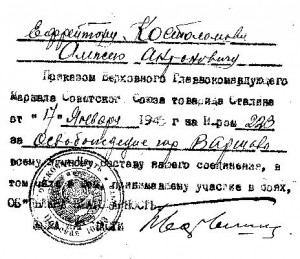 Ефрейтору Костоломову
Алексею Антоновичу
Приказом Верховного Главнокомандующего
Маршала Советского Союза товарища Сталина
от "17" Января 1945 г за Н-ром 223
за Освобождение гор Варшава
всему личному составу нашего соединения, в
том числе и Вам, принимавшему участие в боях,
ОБ'ЯВЛЕНА БЛАГОДАРНОСТЬ
части